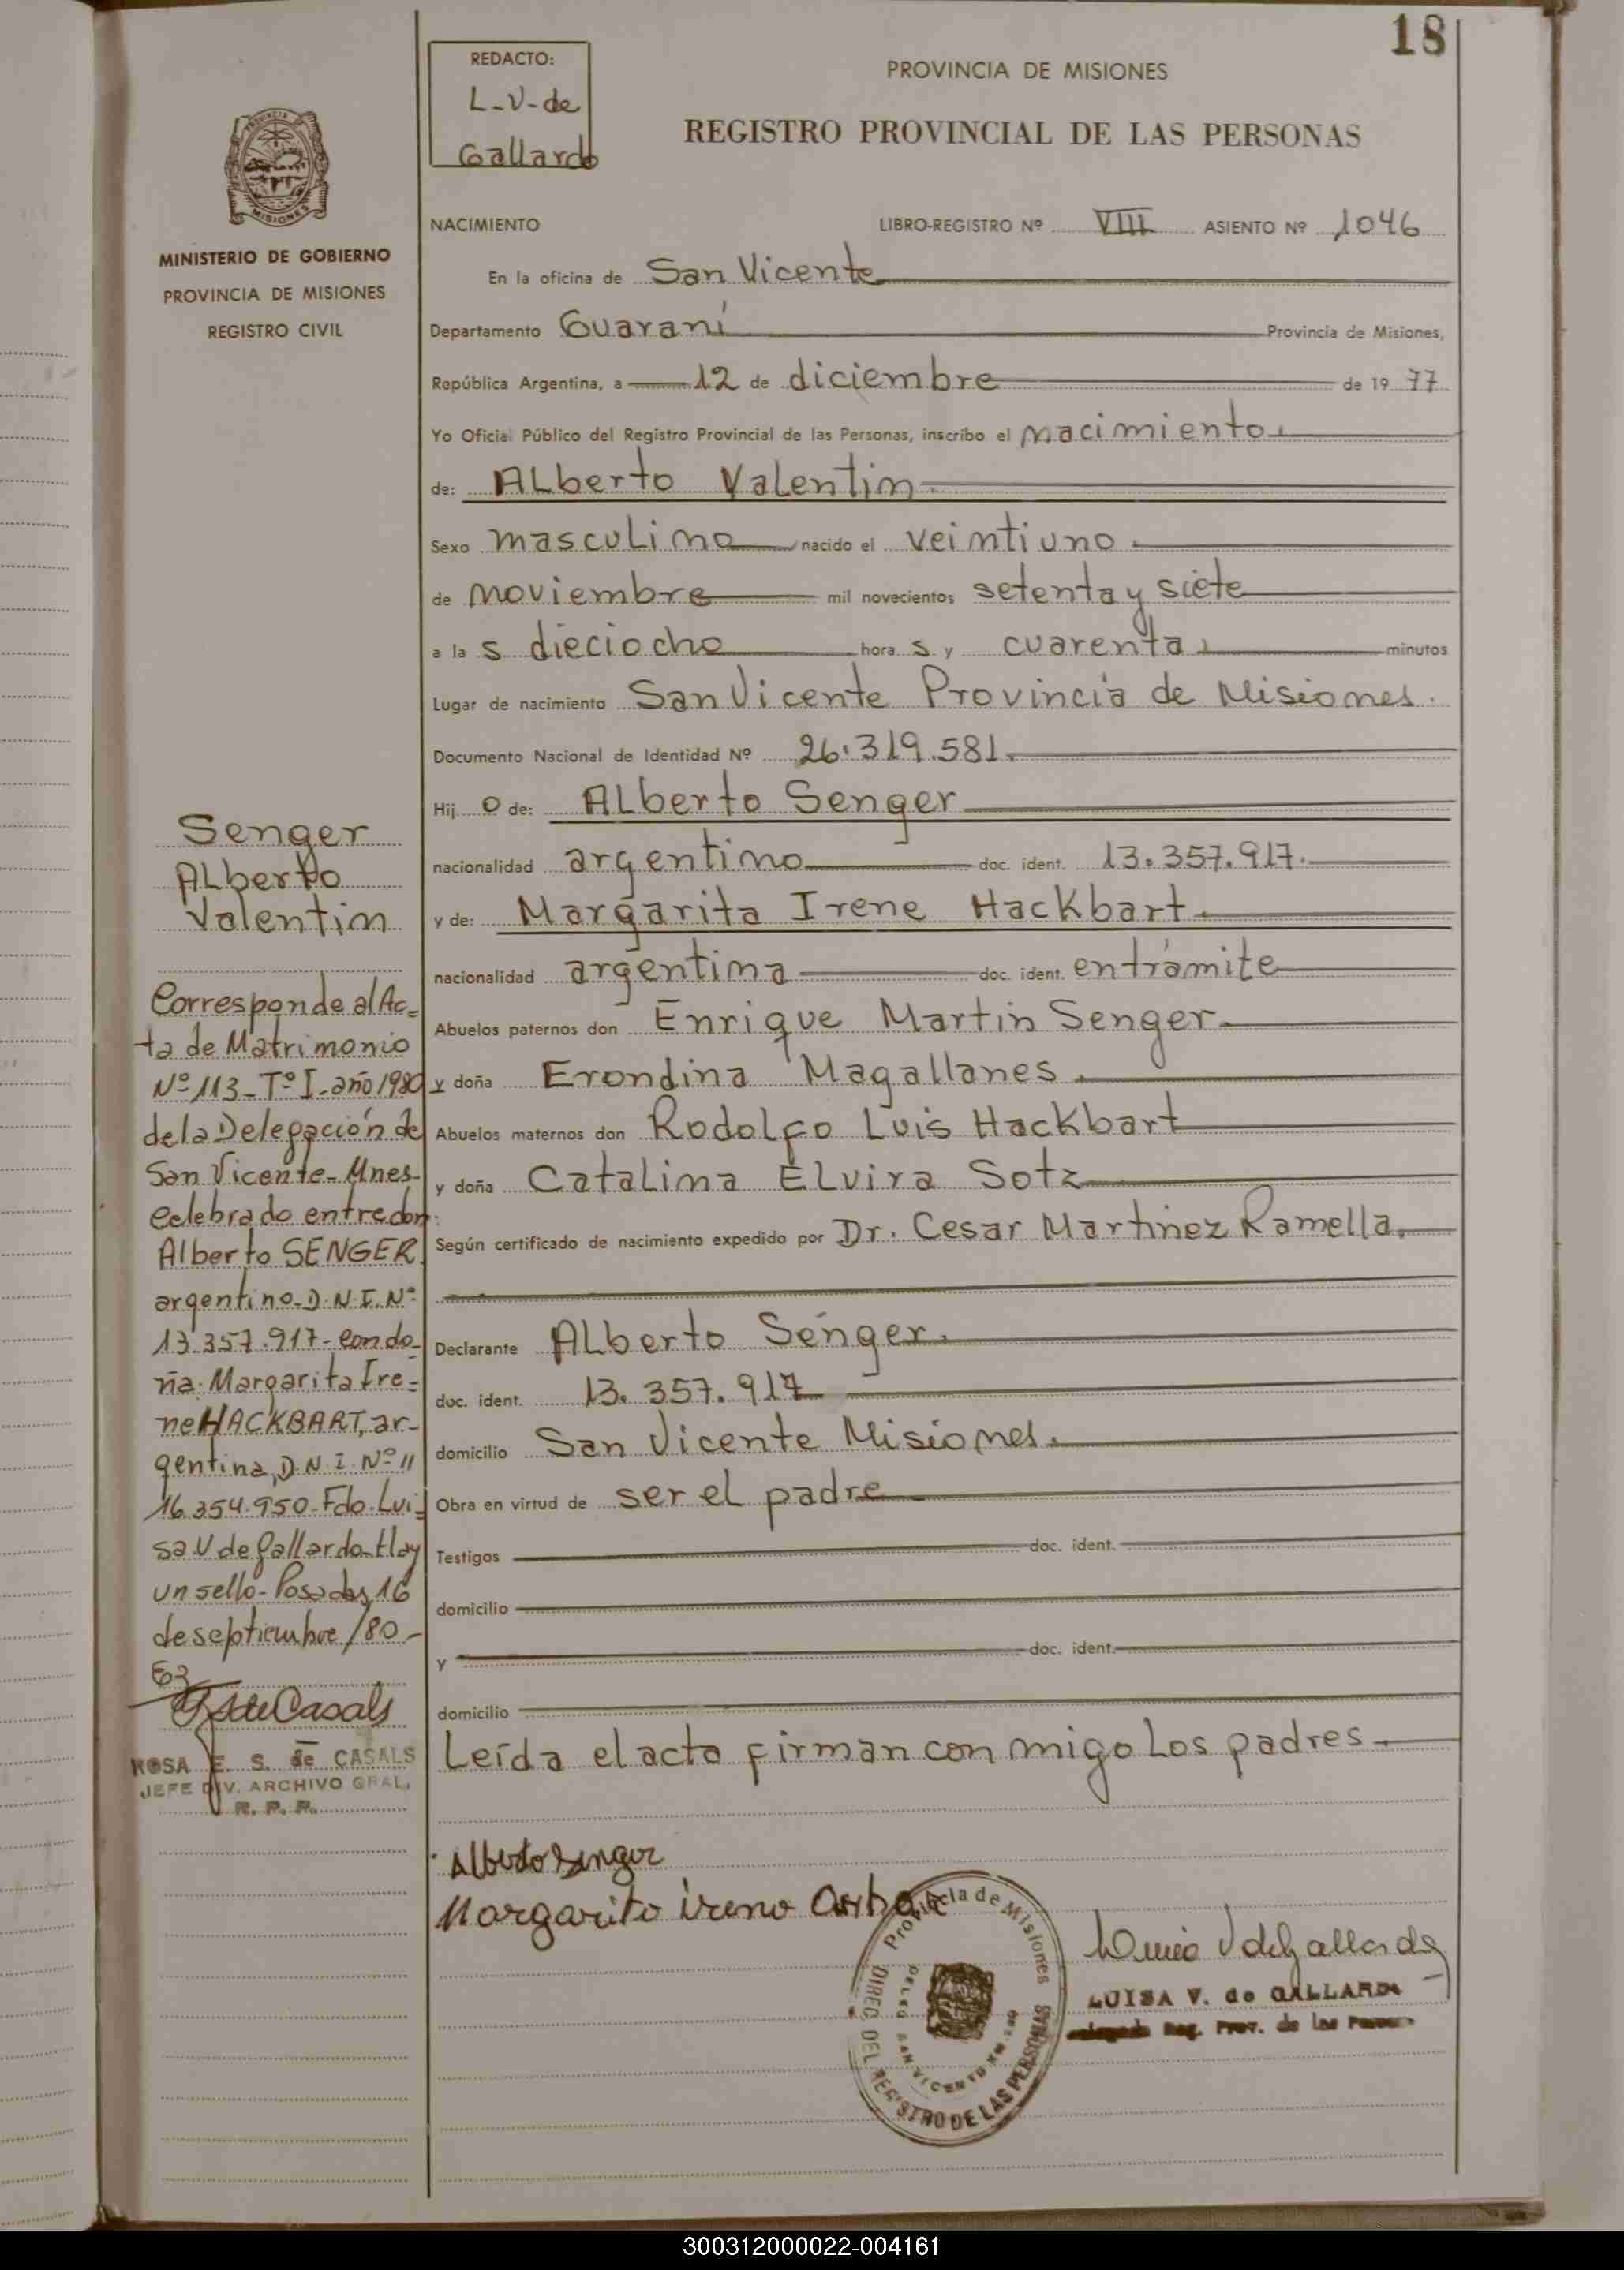 18
REDACTO:
L-V-de
Gallardo
PROVINCIA DE MISIONES
REGISTRO PROVINCIAL DE LAS PERSONAS
MISIONES
MINISTERIO DE GOBIERNO
PROVINCIA DE MISIONES
REGISTRO CIVIL
NACIMIENTO LIBRO-REGISTRO Nº VIII ASIENTO Nº 1046
En la oficina de San Vicente
Departamento Guaraní Provincia de Misiones,
República Argentina, a 12 de diciembre de 19 77
Yo Oficial Público del Registro Provincial de las Personas, inscribo el nacimiento.
de: ALberto Valentin.
Sexo masculino nacido el veintiuno.
de noviembre mil novecientos setenta y siete
a la s dieciocho hora s y cuarenta minutos
Lugar de nacimiento San Vicente Provincia de Misiones.
Documento Nacional de Identidad Nº 26.319.581.
Hij o de: ALberto Senger
nacionalidad argentino doc. ident. 13.357.917.
y de: Margarita Irene Hackbart.
nacionalidad argentina doc. ident. en trámite
Abuelos paternos don Enrique Martin Senger.
y doña Erondina Magallanes.
Abuelos maternos don Rodolfo Luis Hackbart
y doña Catalina ELvira Sotz
Según certificado de nacimiento expedido por Dr. Cesar Martinez Ramella.
Declarante ALberto Senger.
doc. ident. 13.357.917
domicilio San Vicente Misiones.
Obra en virtud de ser el padre
Testigos doc. ident.
domicilio
y doc. ident.
domicilio
Leída el acta firman conmigo Los padres.
Senger
ALberto
Valentin
Corresponde al Ac=
ta de Matrimonio
Nº 113-Tº I-año 1980
de la Delegación de
San Vicente-Mnes-
celebrado entre don:
Alberto SENGER
argentino-D.N.I.Nº
13.357.917-con do-
ña: Margarita Ire=
ne HACKBART, ar-
gentina, D.N.I. Nº 11
16.354.950-Fdo. Lui
sa V de Gallardo-Hay
un sello-Posadas, 16
de septiembre/80-
ROSA E. S. de CASALS
JEFE DIV. ARCHIVO GRAL.
R. P. P.
Alberto Senger
Margarita irene
Provincia de Misiones
DIREC. DEL REGISTRO DE LAS PERSONAS
DELEG. SAN VICENTE
Luisa V de Gallardo
LUISA V. de GALLARDO
Reg. Prov. de las
300312000022-004161